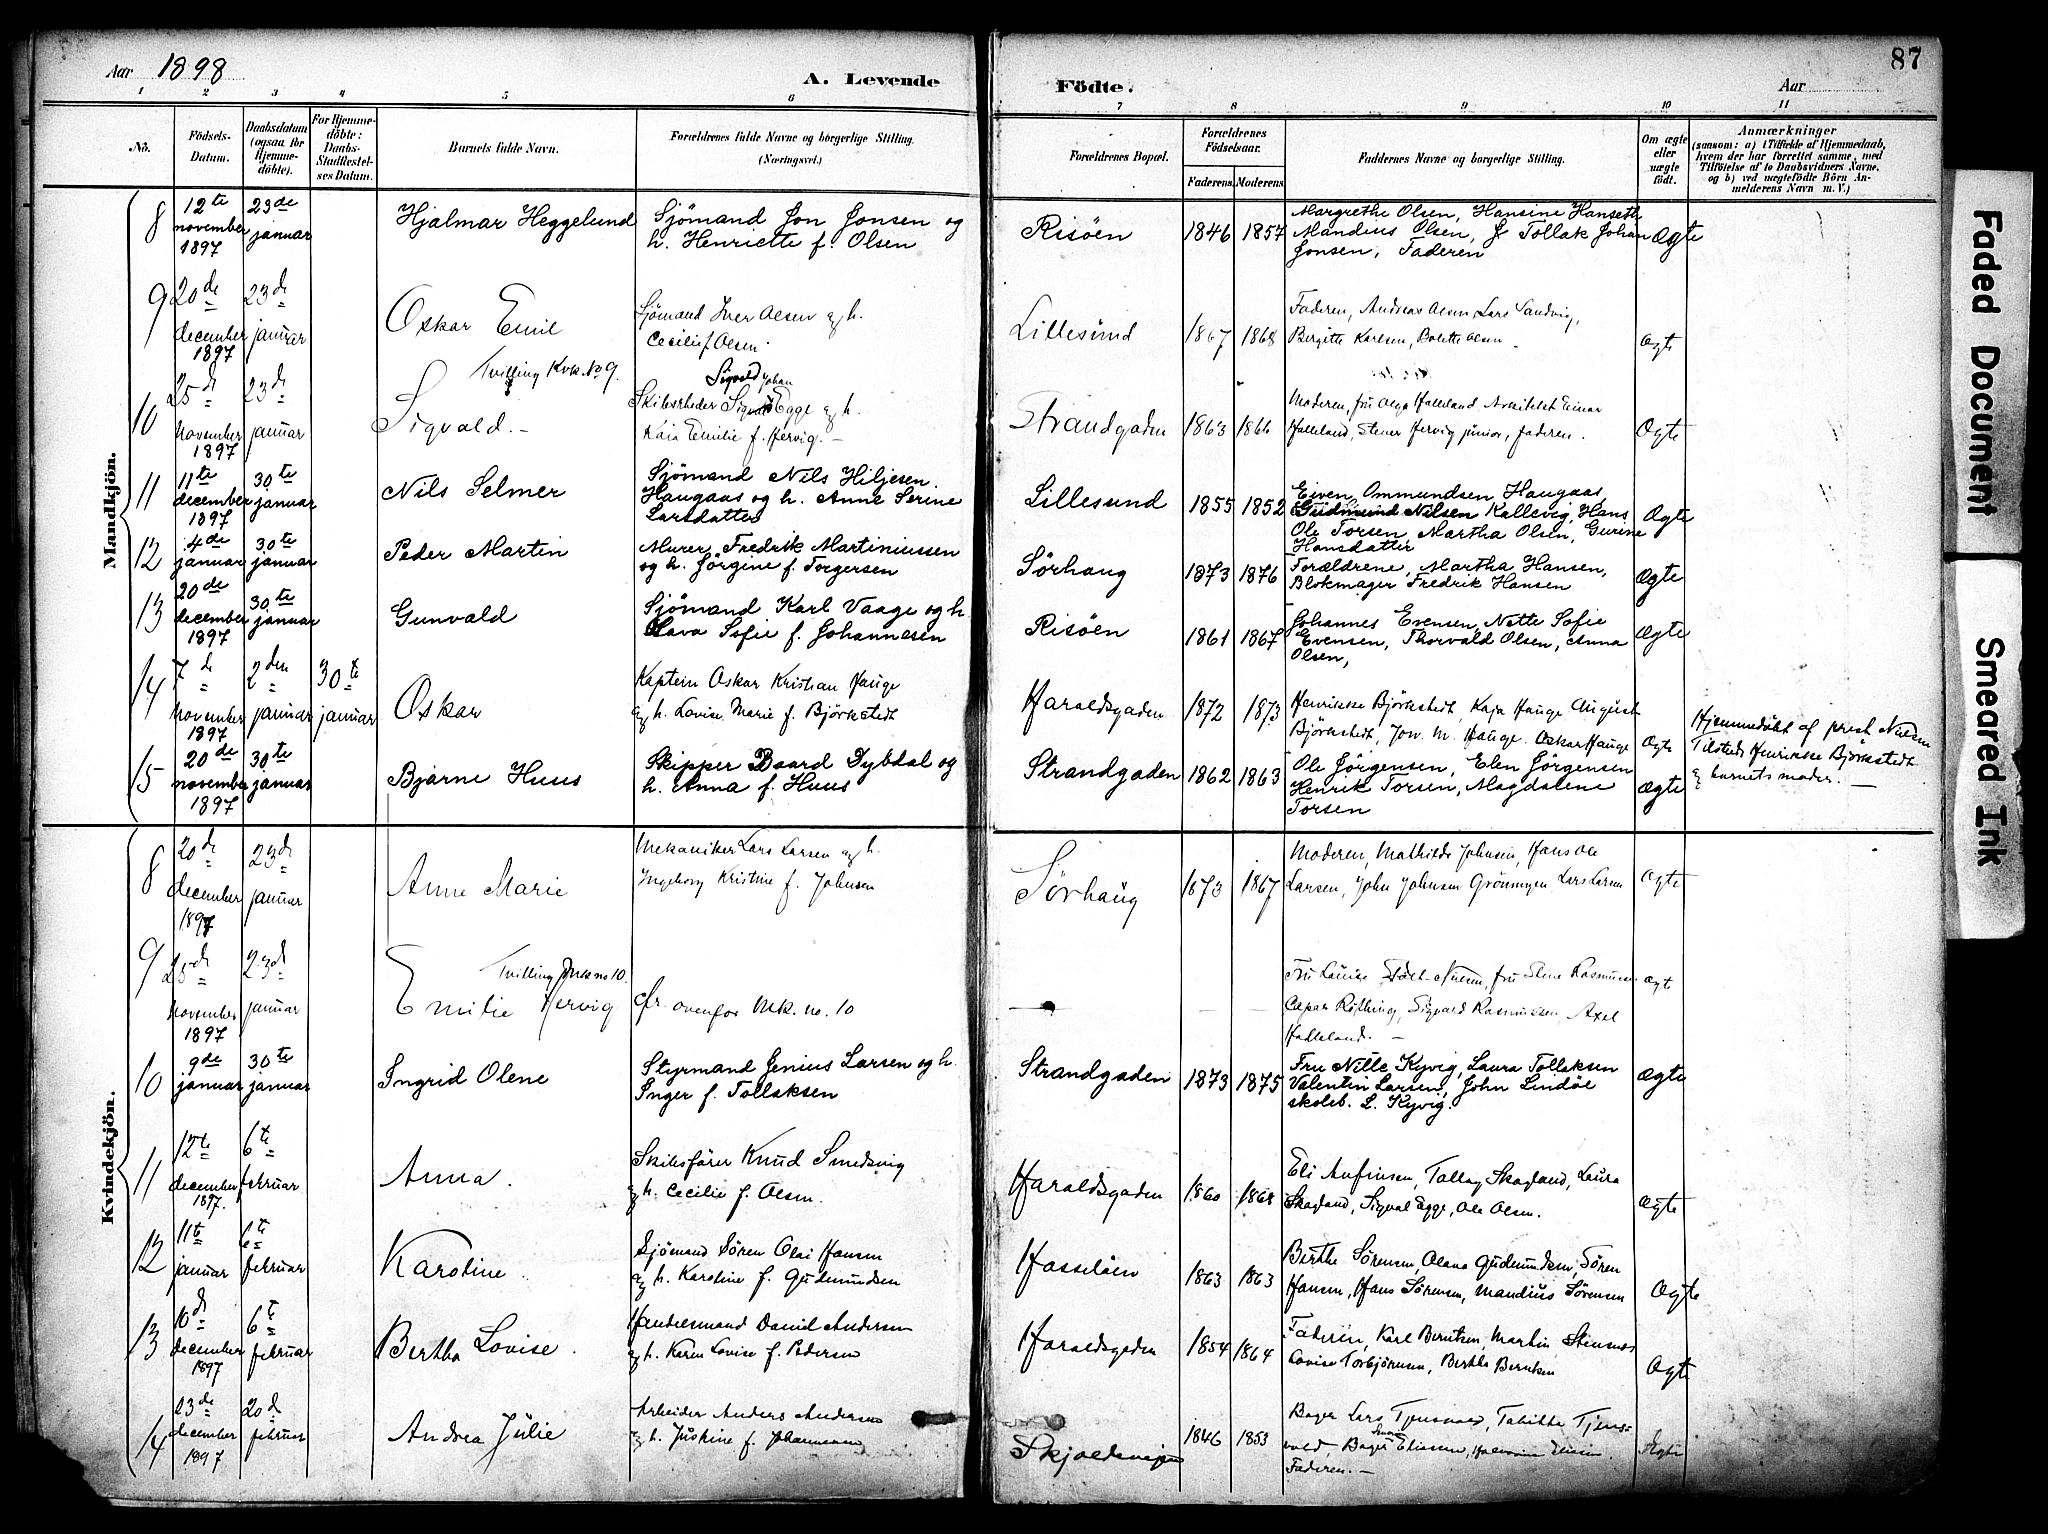 Aar 1898
A. Levende
Födte.
Aar
87
1 2 3 4 5 6 7 8 9 10 11
No.
Födsels-Datum.
Daabsdatum (ogsaa for Hjemmedöbte).
For Hjemmedöbte: Daabs-Stadfestelses Datum.
Barnets fulde Navn.
Forældrenes fulde Navne og borgerlige Stilling. (Næringsvei.)
Forældrenes Bopæl.
Forældrenes Födselsaar.
Faderens Moderens
Faddernes Navne og borgerlige Stilling.
Om ægte eller uægte födt.
Anmærkninger
(saasom: a) i Tilfælde af Hjemmedaab, hvem der har forrettet samme, med Tilföielse af to Daabsvidners Navne, og b) ved uægtefödte Börn Anmelderens Navn m. V.)
Mandkjön.
8 12te november 1897 23de januar Hjalmar Heggelund Sjömand Jon Jonsen og
h. Henriette f. Olsen Risöen 1846 1857 Margrethe Olsen, Hansine Hanseth
Mandius Olsen, Tollak Johan
Jonsen, Faderen Ægte
9 20de december 1897 23de januar Oskar Emil Sjömand Iver Olsen og h.
Cecilie f Olsen. Lillesund 1867 1868 Faderen, Andreas Olsen, Lars Sandvig,
Bergitte Karlsen, Bolette Olsen Ægte
10 25de november 1897 23de januar Tvilling Kvk. No 9.
Sigvald. Skibsrheder Sigvald Johan Egge og h.
Kaia Emilie f. Hervig. Strandgaden 1863 1866 Moderen, fru Olga Halleland, Arkitekt Einar
Halleland, Stener Hervig junior, faderen. Ægte
11 11te december 1897 30te januar Nils Selmer Sjömand Nils Hiljesen
Haugaas og h. Anne Serine
Larsdatter Lillesund 1855 1852 Eiven Ommundsen Haugaas
Gudmund Nilsen Kallevig, Hans
Ole Torsen, Martha Olsen, Gurine
Hansdatter Ægte
12 4de januar 30te januar Peder Martin Murer Fredrik Martiniussen
og h. Jörgine f. Torgersen Sörhaug 1873 1876 Forældrene, Martha Hansen,
Blokmager Fredrik Hansen Ægte
13 20de december 1897 30te januar Gunvald Sjömand Karl Vaage og h.
Lava Sofie f. Johannesen Risöen 1861 1867 Johannes Evensen, Nette Sofie
Evensen, Thorvald Olsen, Anna
Olsen, Ægte
14 7de november 1897 2den januar 30te januar Oskar Kaptein Oskar Kristian Hauge
og h. Lovise Marie f. Björkstedt Haraldsgaden 1872 1873 Henrikke Björkstedt, Kaja Hauge August
Björkstedt, Jow. M. Hauge. Oskar Hauge Ægte Hjemmedöbt af prest Nielsen
Tilsteds Henrikke Björkstedt
og barnets moder.
15 20de november 1897 30te januar Bjarne Huus Skipper Baard Dybdal og
h. Anna f. Huus Strandgaden 1862 1863 Ole Jörgensen, Elen Jörgensen
Henrik Torsen, Magdalene
Torsen Ægte
Kvindekjön.
8 20de december 1897 23de januar Anne Marie Mekaniker Lars Larsen og h.
Ingeborg Kristine f. Johnsen Sörhaug 1873 1867 Moderen, Mathilde Johnsen, Hans Ole
Larsen, John Johnsen Lars Larsen Ægte
9 25de november 1897 23de januar Tvilling Mk no 10.
Emilie Hervig Cfr. ovenfor Mk. no. 10 Fru Louise Nielsen, fru Rasmussen
Røthing, Sigvald Rasmussen, Axel
Halleland. Ægte
10 9de januar 30te januar Ingrid Olene Styrmand Jenius Larsen og h.
Inger f. Tollaksen Strandgaden 1873 1875 Fru Nille Kyvig, Laura Tollaksen
Valentin Larsen, John Lindöe
skoleb. L. Kyvig. Ægte
11 12te december 1897. 6te februar Anna. Skibsfører Knud Smedsvig
og h. Cecilie f. Olsen. Haraldsgaden 1860 1868 Eli Anfinsen, Tollag Skagland, Laura
Skagland, Sigval Egge, Ole Olsen. Ægte
12 11te januar 6te februar Karoline. Sjömand Sören Olai Hansen
og h. Karoline f. Gudmundsen Hasselöen 1863 1863 Berthe Sörensen, Olava Gudmundsen, Sören
Hansen, Hans Sörensen, Mandius Sörensen Ægte
13 10de december 1897 6te februar Bertha Lovise. Handelsmand David Andersen
og h. Karen Lovise f. Pedersen Haraldsgaden 1854 1864 Faderen, Karl Berntsen, Martin Stensnes
Lovise Torbjörnsen, Berthe Berntsen Ægte
14 23de december 1897 20de februar Andrea Julie Arbeider Anders Andersen
og h. Justine f. Johannesen Skjoldeveien 1846 1853 Bager Lars Tjensvold, Tabitha Tjens-
vold Bager Eliassen,
Faderen. Ægte
Faded Document
Smeared Ink